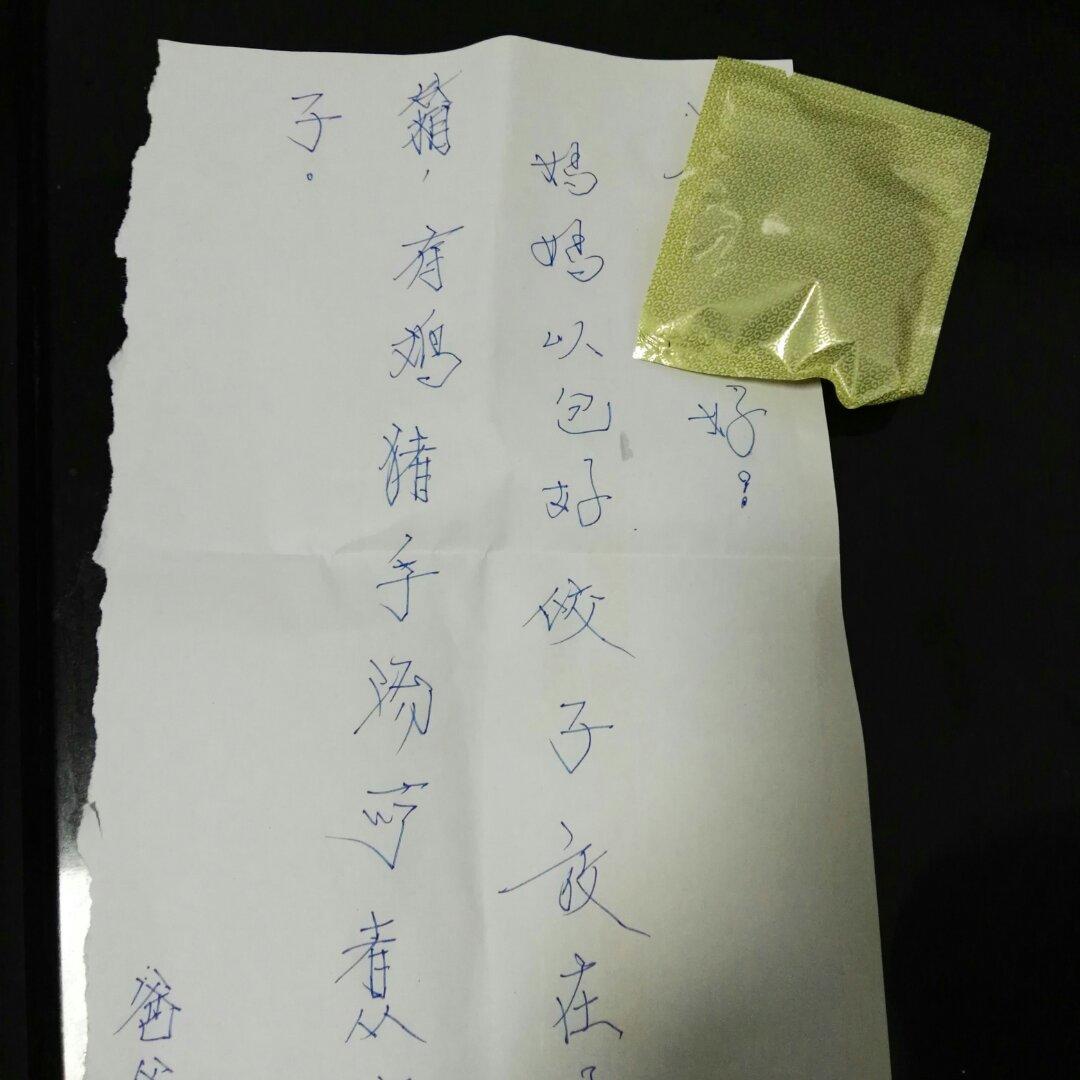 好!
妈妈以包好饺子放在
箱,有鸡猪手汤可煮
子。
爸爸